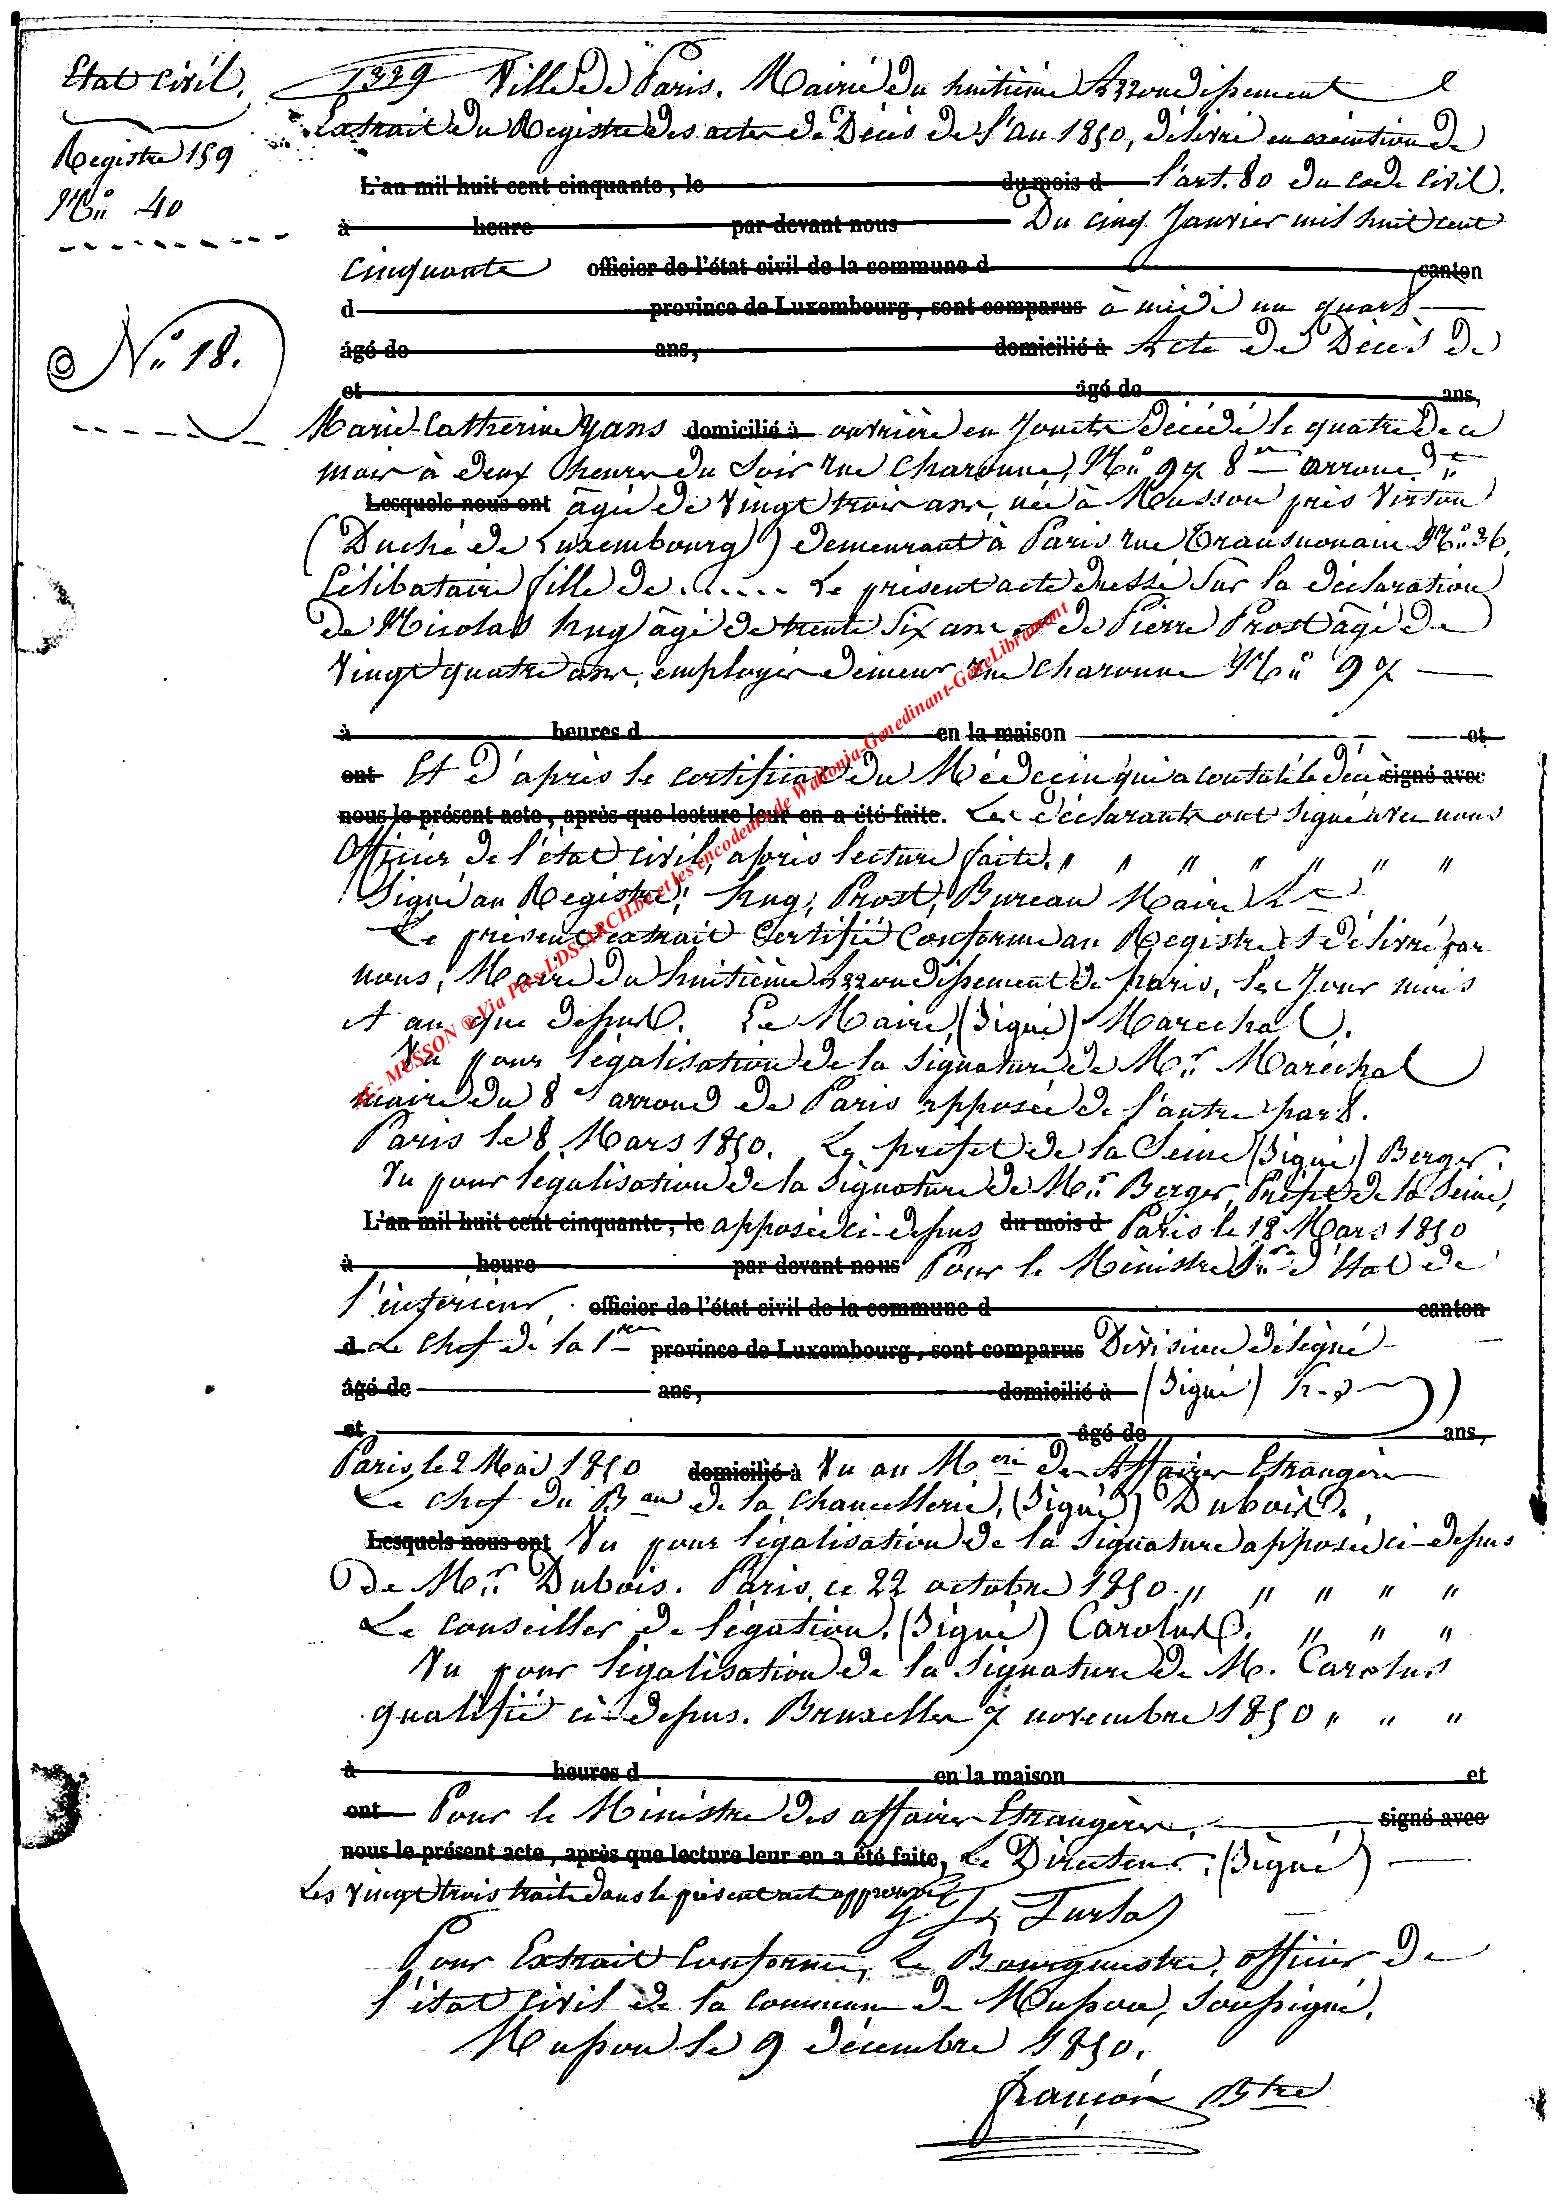 Etat civil.
Registre 159
N° 40
N° 18.
1339 Ville de Paris. Mairie du huitième Arrondissement
Extrait du Registre des actes de Décès de l'an 1850, délivré en exécution de
L'an mil huit cent cinquante, le du mois d l'art. 80 du code civil.
à heure par devant nous Du cinq Janvier mil huit cent
cinquante officier de l'état civil de la commune d canton
d province de Luxembourg, sont comparus à midi un quart
âgé de ans, domicilié à Acte de Décès de
et âgé de ans,
Marie Catherine Yans domicilié à ouvrière en Jouets Décédé le quatre de ce
mois à deux heures du soir rue Charonne, N° 97 8me arrond.t
Lesquels nous ont âgée de vingt trois ans, née à Musson près Virton
(Duché de Luxembourg) demeurant à Paris rue Transnonain N° 36,
Célibataire fille de ...... Le présent acte dressé sur la déclaration
de Nicolas hug âgé de trente six ans et de Pierre Prost âgé de
vingt quatre ans, employés demeur rue Charonne N° 97
à heures d en la maison et
ont Et d'après le certificat du Médecin qui a constaté le décès signé avec
nous le présent acte, après que lecture leur en a été faite. Les déclarants ont signé avec nous
Officier de l'état civil, après lecture faite. " " " " " " "
Signé au Registre; hug, Prost, Bureau Maire
Le présent extrait Certifié Conforme au Registre et délivré par
nous, Maire du huitième Arrondissement de paris, les Jour mois
et an que dessus. Le Maire, (Signé) Marechal.
Vu pour légalisation de la signature de Mr. Maréchal
maire du 8e arrond de Paris apposée de l'autre part.
Paris le 8 Mars 1850. Le prefet de la Seine (Signé) Berger.
Vu pour légalisation de la signature de Mr. Berger, Préfet de la Seine,
L'an mil huit cent cinquante, le apposée ci-dessus du mois d Paris le 18 Mars 1850
à heure par devant nous Pour le Ministre Sre d'Etat de
l'intérieur officier de l'état civil de la commune d canton
d Le chef de la 1re province de Luxembourg, sont comparus Division délégué
âgé de ans, domicilié à (Signé)
et âgé de ans,
Paris, le 2 Mai 1850 domicilié à Vu au Mère des Affaires Etrangères
Le chef du Bau de la chancellerie, (Signé) Dubois.
Lesquels nous ont Vu pour légalisation de la signature apposée ci-dessus
de Mr. Dubois. Paris, ce 22 octobre 1850. " " " " "
Le conseiller de légation. (Signé) Carolus. " " "
Vu pour légalisation de la signature de M. Carolus
qualifié ci-dessus. Bruxelles 7 novembre 1850 " " "
à heures d en la maison et
ont Pour le Ministre des affaires Etrangères, signé avec
nous le présent acte, après que lecture leur en a été faite, Le Directeur. (Signé)
Les vingt trois traits dans le présent acte approuvés
Pour Extrait Conforme, Le Bourgmestre, officier de
l'état civil de la commune de Musson, soussigné.
Musson le 9 décembre 1850.
françois Btre
AC- MUSSON ® Via Pels-LDS-ARCH.be et les encodeurs de Wallonia-Genedinant-GeneLibramont